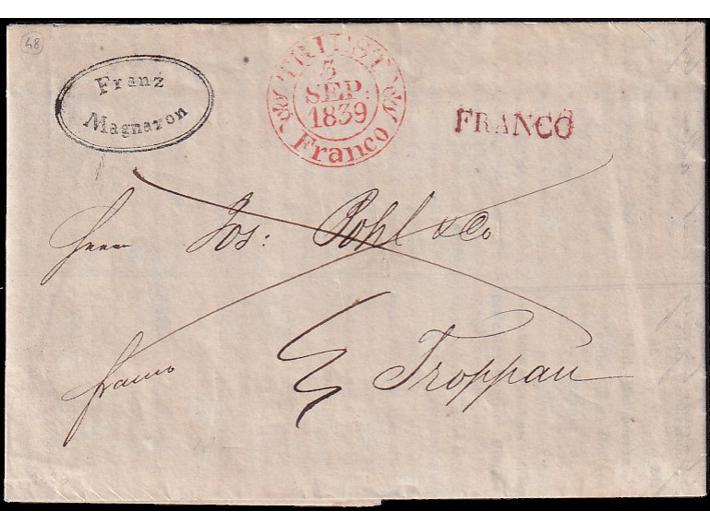 48
Franz
Magnaron
TRIEST
3
SEP.
1839
Franco
FRANCO
Herrn Jos: Pohl & Co
franco
Troppau